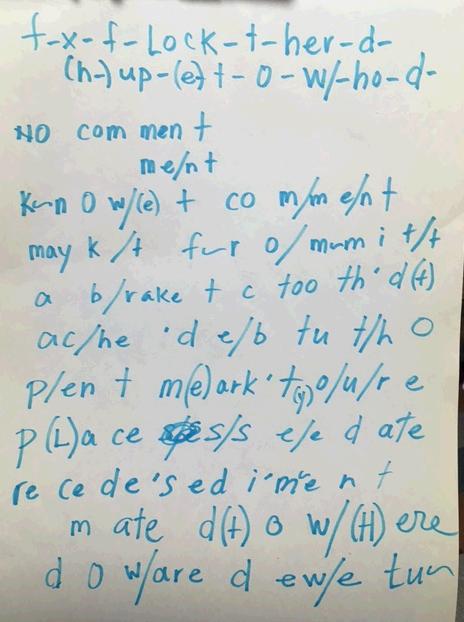 f-x-f-Lock-t-her-d-
(h-)up-(e)t-O-w/-ho-d-
NO com men t
me/n t
K~n O w/(e) t co m/m e/n t
may k /t f~r o/ m~m i t/t
a b/rake t c too th'd(t)
ac/he 'd e/b tu t/h O
p/en t m(e)ark't(y)o/u/r e
p(L)a ce s/s e/e d ate
re ce de's ed i'm'e n t
m ate d(t) o w/(H) ere
d o w/are d ew/e tu~